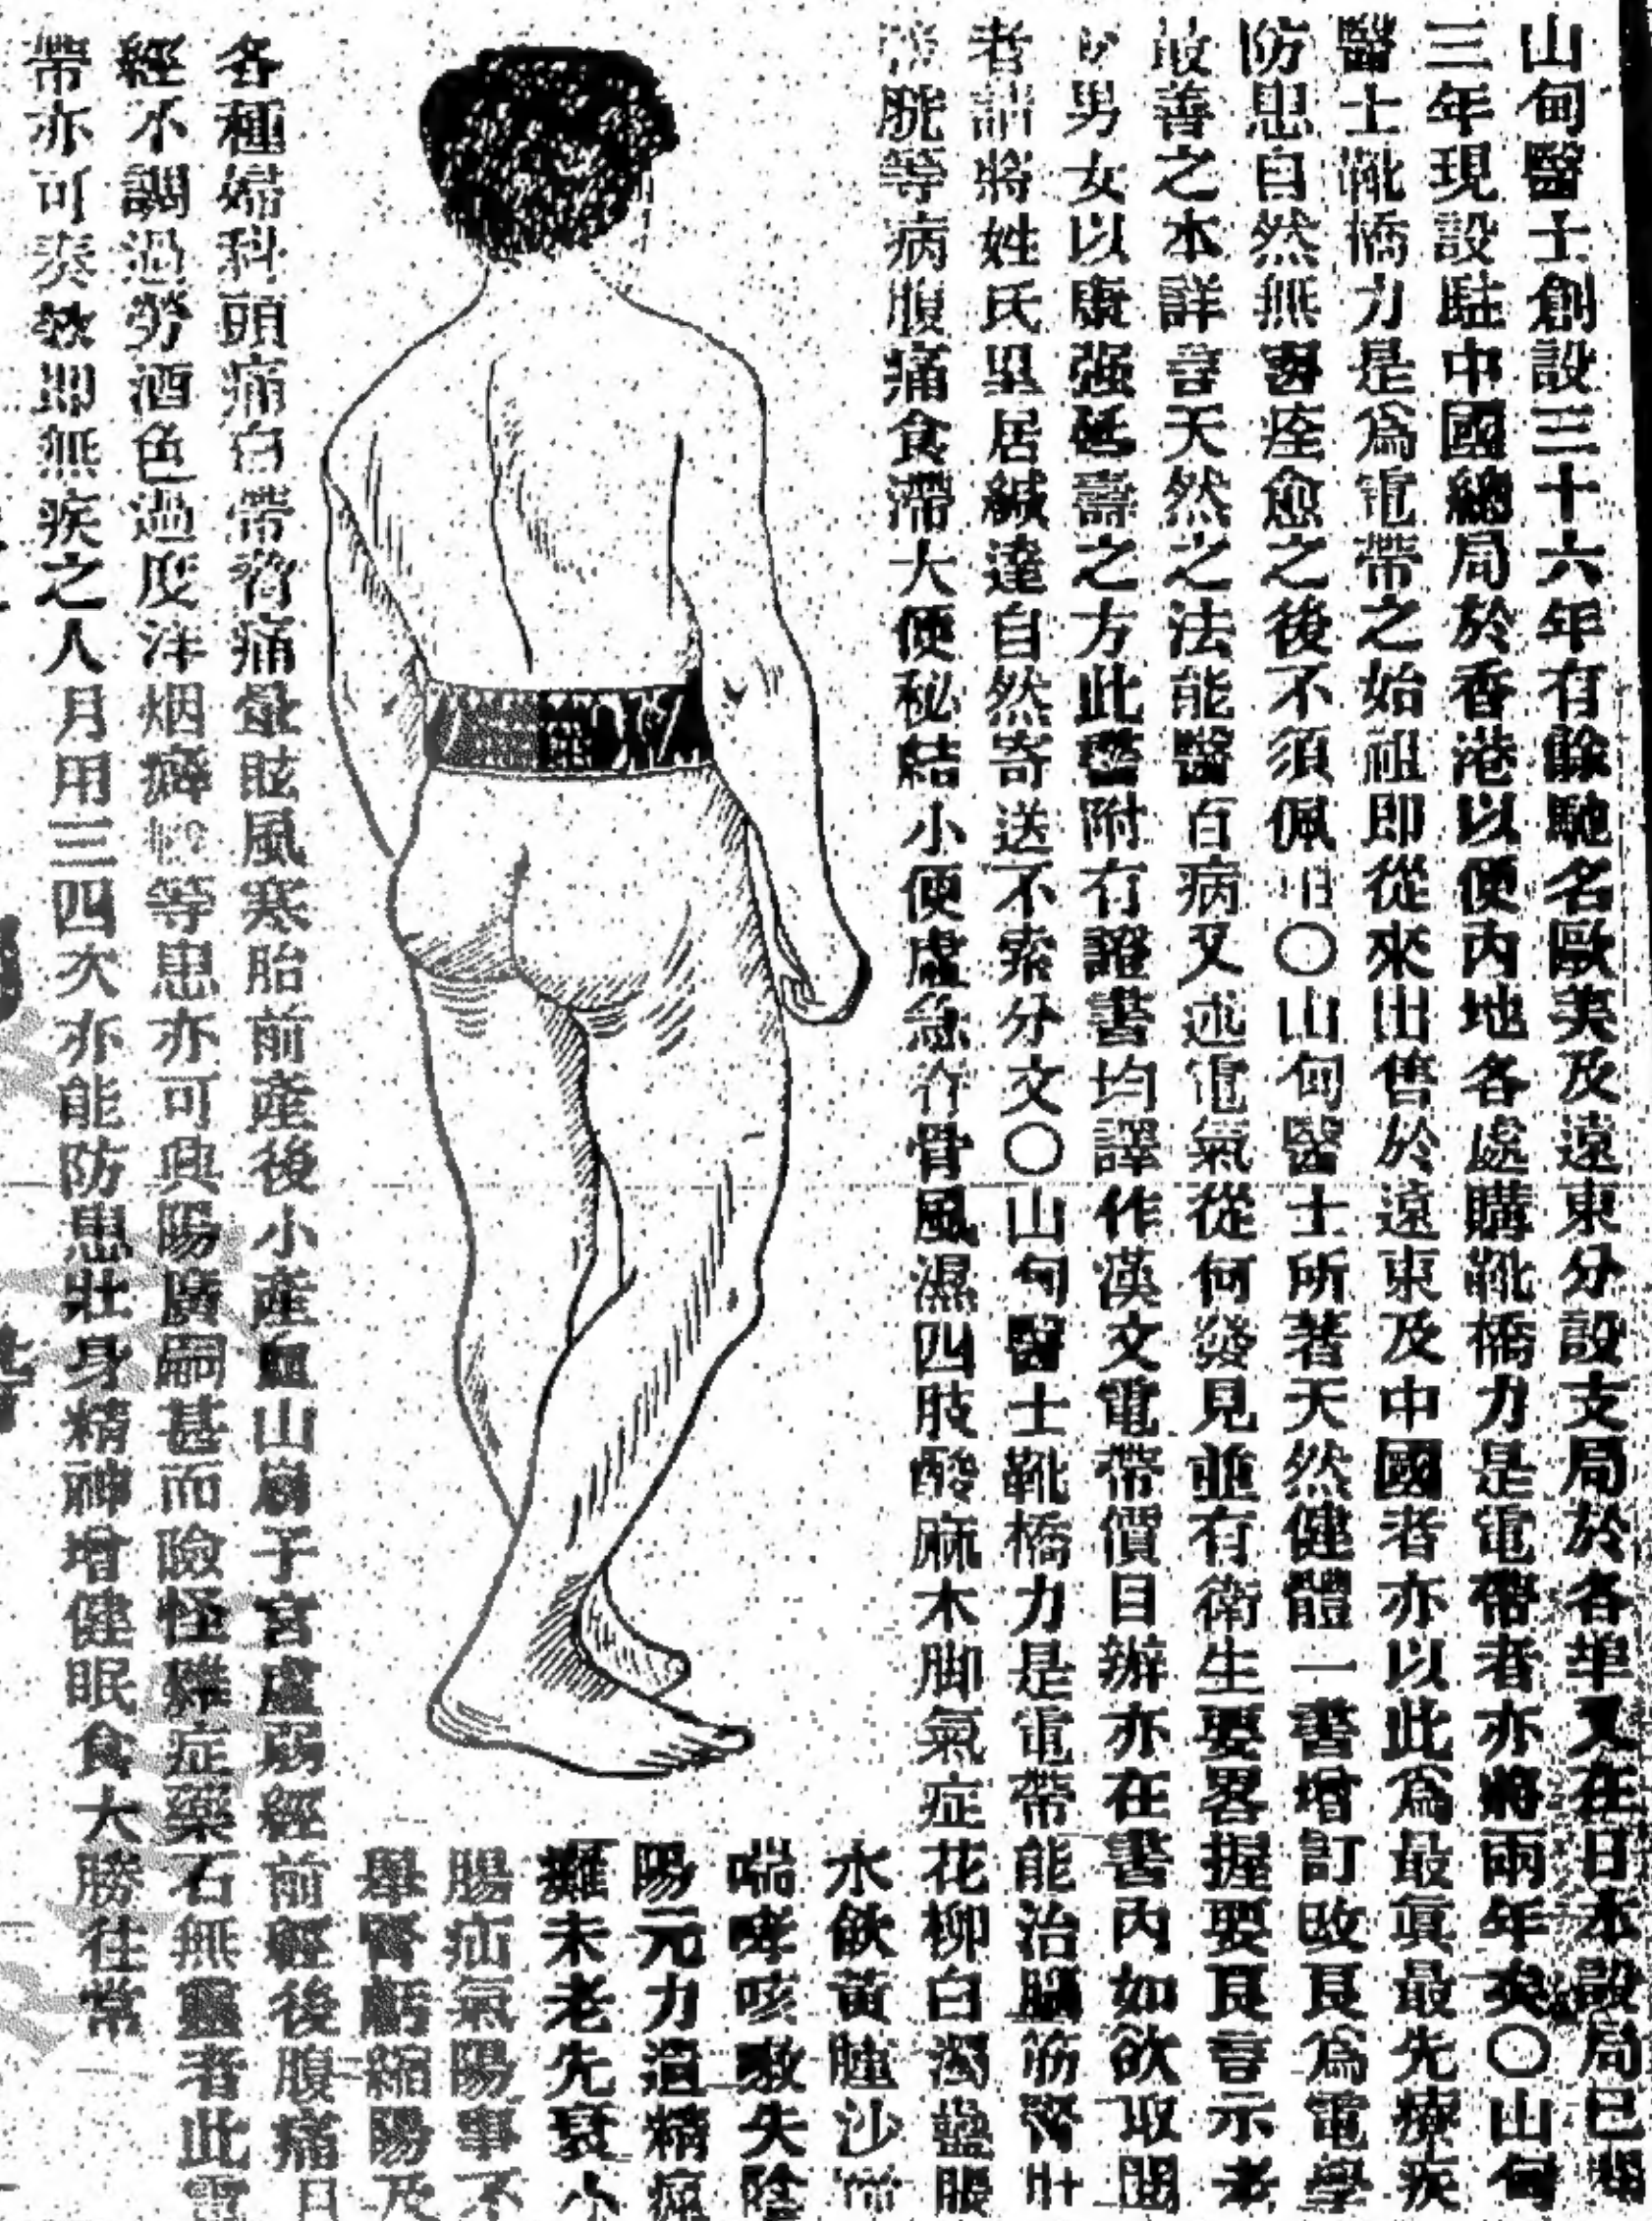 山甸醫士創設三十六年有餘馳名歐美及遠東分設支局於各埠又在日本設局已
三年現設駐中國總局於香港以便內地各處購靴橋力是電帶者亦將兩年矣〇山甸
醫士靴橋力是爲電帶之始祖即從來出售於遠東及中國者亦以此爲最眞最先療疾
防患自然無害痊愈之後不須佩〇山甸醫士所著天然健體一書增訂改良爲電學
最善之本詳言天然之法能醫百病又述電氣從何發見並有衛生要畧握要良言示
男女以康强延壽之方此書附有證書均譯作漢文電帶價目辦亦在書內如欲取閱
者請將姓氏里居緘達自然寄送不索分文〇山甸醫士靴橋力是電帶能治腦筋腎
脫等病腹痛食滯大便秘結小便虛急骨風濕四肢酸麻木脚氣症花柳白濁
水飲黃腫沙
喘哮咳嗽失陰
陽元力遺精
癱未老先衰小
腸疝氣陽事不
舉腎虧縮陽及
各種婦科頭痛白帶暈眩風寒胎前產後小產血山崩子宮虛弱經前經後腹痛
經不調過勞酒色過度洋烟癖等患亦可興陽廣嗣甚而險怪難症藥石無靈者此電
帶亦可奏效即無疾之人月用三四次亦能防患壯身精神增健眠食大勝往常